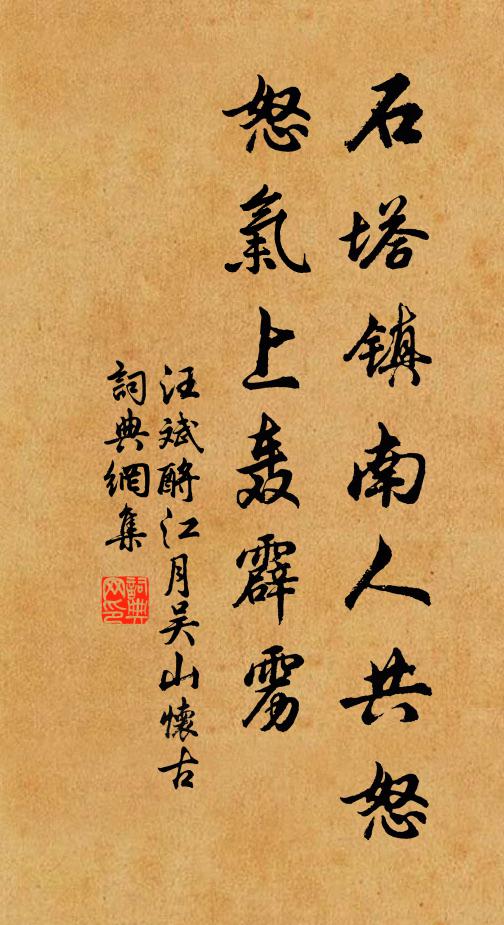 石塔镇南人共怒
怒氣上轰霹雳
汪斌酹江月吴山懷古
詞典網集
詞典网印